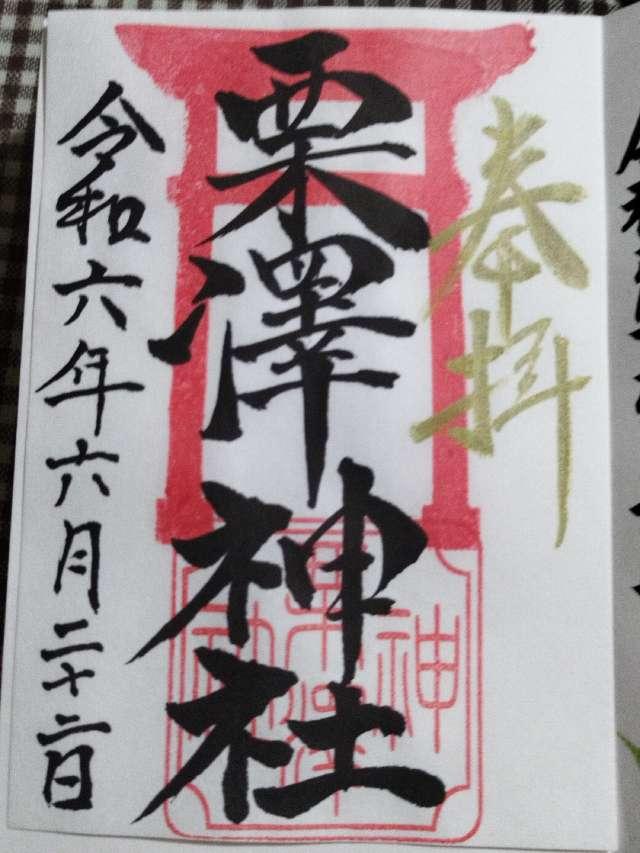 奉拝
栗澤神社
令和六年六月二十二日